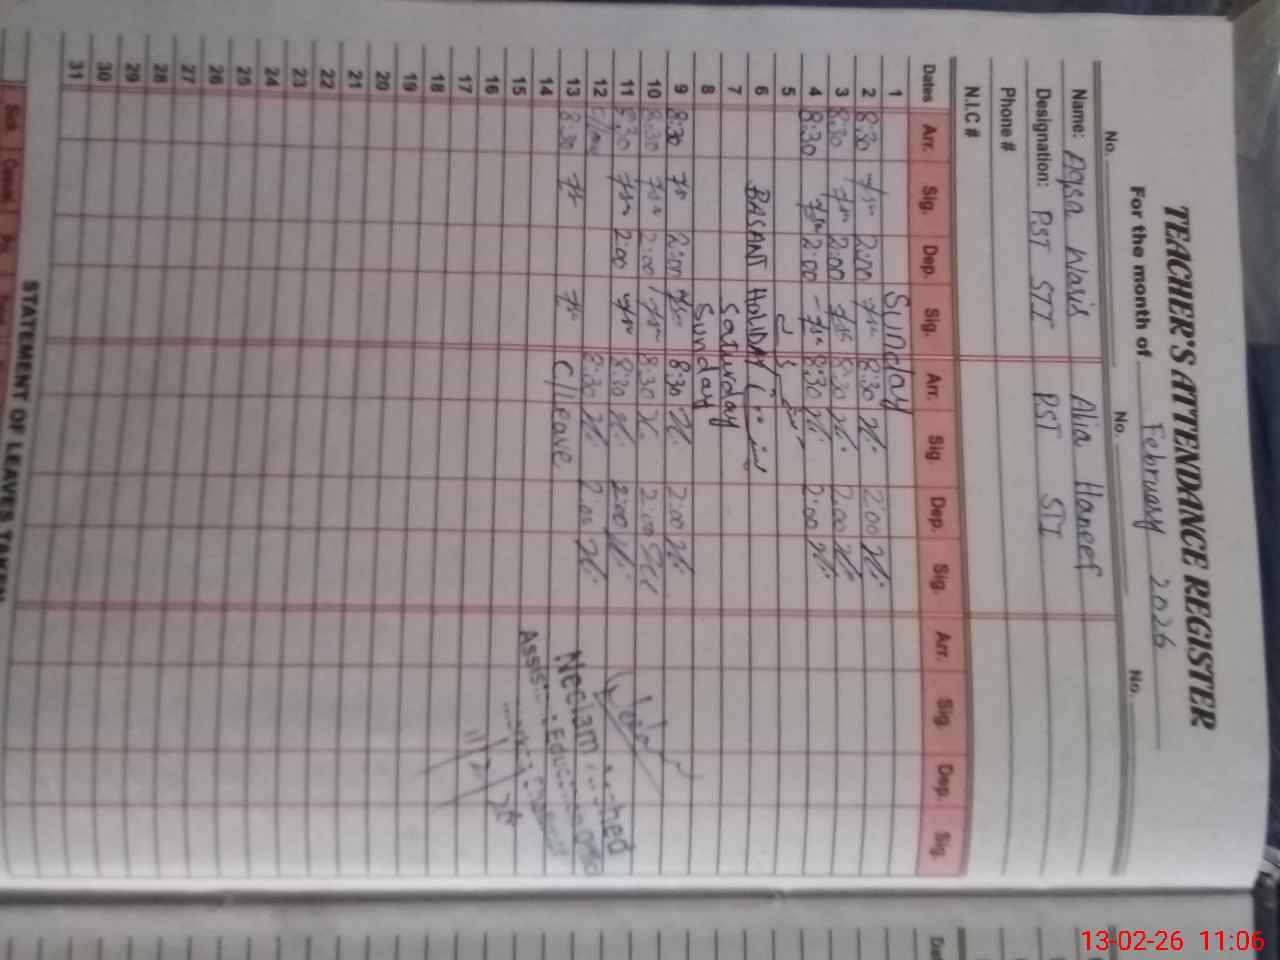 TEACHER'S ATTENDANCE REGISTER
For the month of February 2026
No. No. No.
Name: Aqsa Waris Alia Haneef
Designation: PST STI PST STI
Phone #
N.I.C #
Dates Arr. Sig. Dep. Sig. Arr. Sig. Dep. Sig. Arr. Sig. Dep. Sig.
1 Sunday
2 8:30 2:00 8:30 2:00
3 8:30 2:00 8:30 2:00
4 8:30 2:00 8:30 2:00
5
6 BASANT HOLIDAY
7 Saturday
8 Sunday
9 8:30 2:00 8:30 2:00
10 8:30 2:00 8:30 2:00
11 8:30 2:00 8:30 2:00
12 8:30 2:00
13 8:30 C/Leave
14
15
16
17
18
19
20
21
22
23
24
25
26
27
28
29
30
31
Neelam
STATEMENT OF LEAVES TAKEN
Sick Casual
13-02-26 11:06